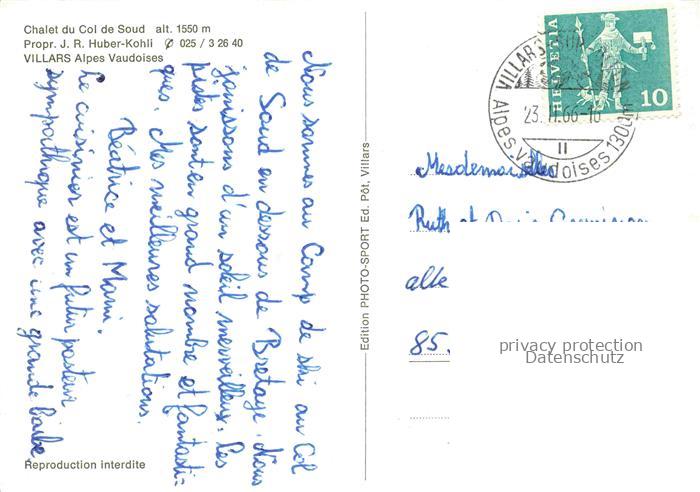 Chalet du Col de Soud alt. 1550 m
Propr. J. R. Huber-Kohli ✆ 025 / 3 26 40
VILLARS Alpes Vaudoises
Nous sommes au Camp de ski au Col
de Soud en dessous de Bretaye. Nous
jouissons d'un soleil merveilleux. Les
pistes sont en grand nombre et fantasti-
ques. Mes meilleures salutations.
Béatrice et Mami.
Le cuisinier est un futur pasteur
sympathique avec une grande barbe
Reproduction interdite
Edition PHOTO-SPORT Ed. Pôt, Villars
HELVETIA
10
VILLARS
23. II. 66-16
II
Alpes vaudoises 1300m
Mesdemoiselles
Ruth et
alte
85.
privacy protection
Datenschutz